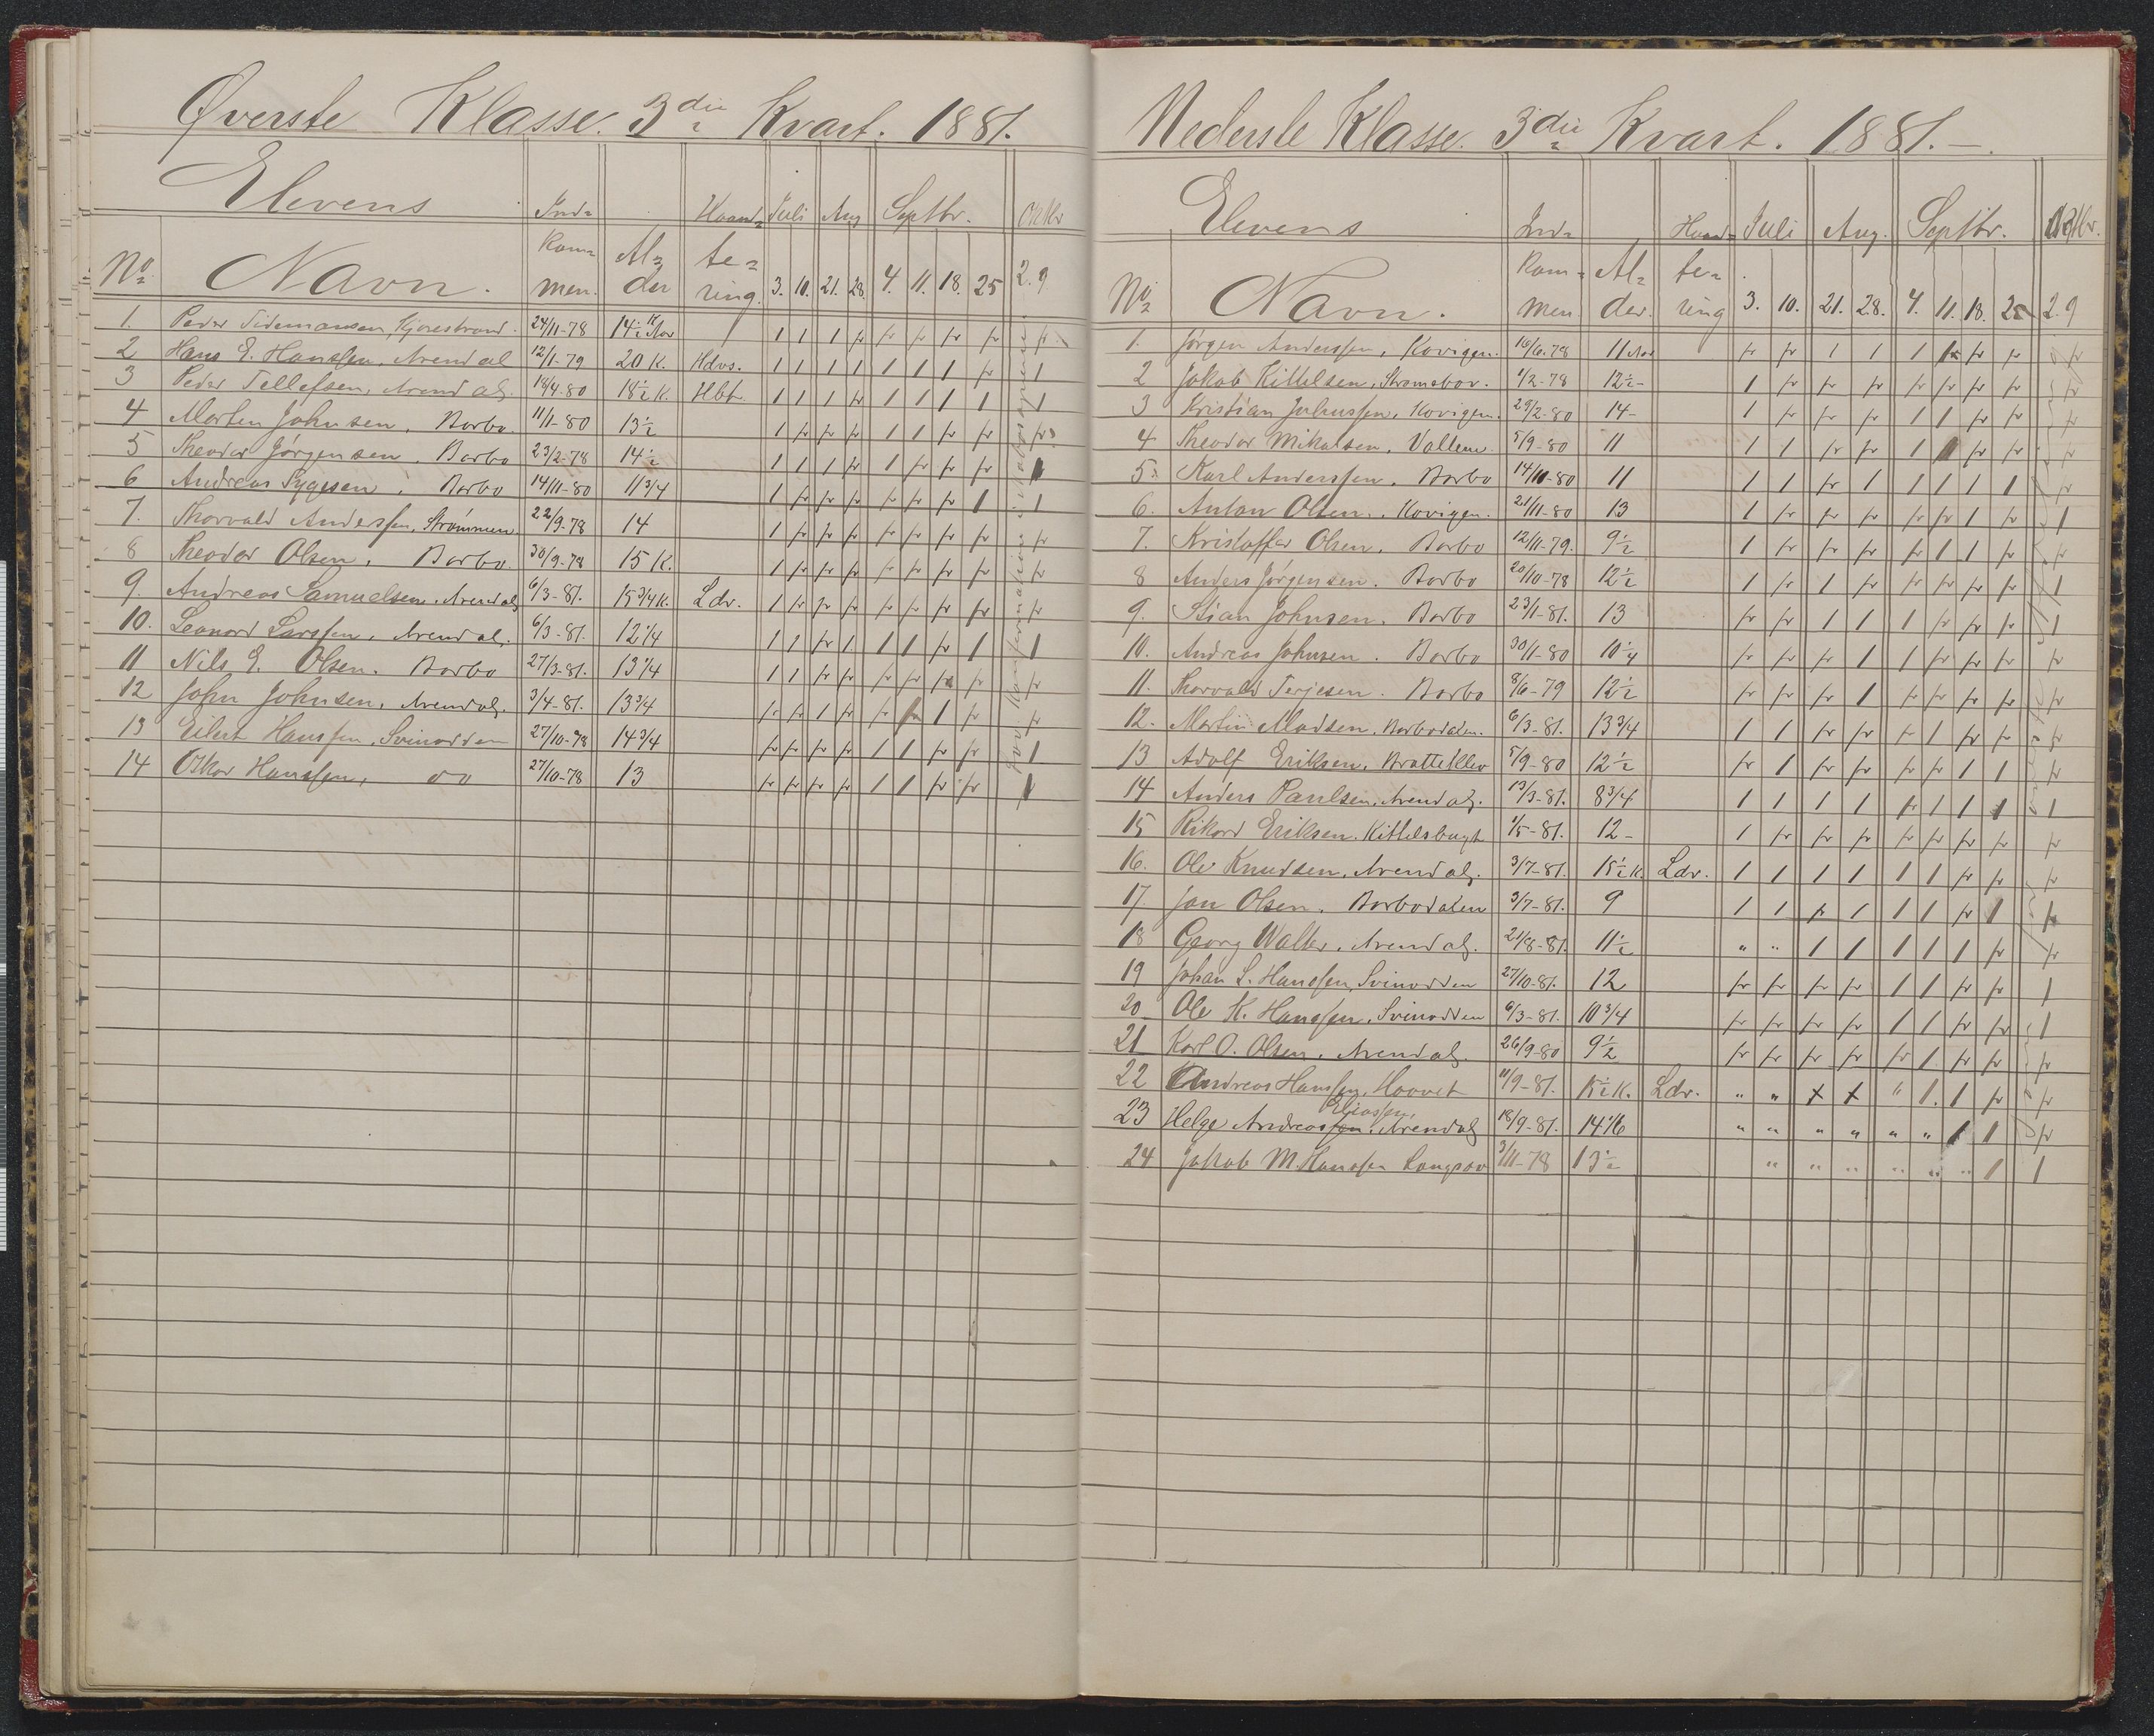 Øverste Klasse. 3die Kvart. 1881.
Elevens Ind= Haand= Juli Aug Septbr. Oktbr
No Navn. kom= men. Al= der te= ring. 3. 10. 21. 28. 4. 11. 18. 25 2. 9
1. Peder Tidemansen, Kjørestrand. 24/11-78 14½ Aar 1 1 1 fr fr fr fr fr fr
2 Hans E. Hanssen, Arendal 12/1-79 20 K. Hdvs. 1 1 1 1 1 1 1 fr 1
3 Peder Tellefsen, Arendal. 18/4-80 18½ K. Hbt. 1 1 1 fr 1 1 1 1 1
4 Morten Johnsen, Barbo. 11/1-80 13½ 1 fr fr fr 1 1 fr fr fr
5 Theodor Jørgensen, Barbo 23/2-78 14½ 1 1 1 fr 1 fr fr fr 1
6 Andreas Sygesen, Barbo 14/11-80 11¾ 1 fr fr fr fr fr fr 1 1
7. Thorvald Anderssen, Strømmen 22/9-78 14 1 fr fr fr fr fr fr fr fr
8 Theodor Olsen, Barbo 30/9-78 15 K. 1 fr fr fr fr fr fr fr fr
9. Andreas Samuelsen, Arendal 6/3-81. 15¾ K. Ldr. 1 fr fr fr fr fr fr fr fr
10. Leonard Larssen, Arendal. 6/3-81. 12¼ 1 1 fr 1 1 1 fr 1 1
11 Nils E. Olsen. Barbo 27/3-81. 13¼ 1 1 fr fr fr fr fr fr fr
12 John Johnsen, Arendal. 3/4-81. 13¾ fr fr 1 fr fr fr 1 fr fr
13 Eilert Hanssen, Svinodden 27/10-78 14¾ fr fr fr fr 1 1 fr fr 1
14 Oskar Hanssen, do 27/10-78 13 fr fr fr fr 1 1 fr fr 1
Nederste Klasse. 3die Kvart. 1881.–
Elevens Ind= Haand= Juli Aug. Septbr. Oktbr.
No Navn. kom= men Al= der. te= ring 3. 10. 21. 28. 4. 11. 18. 25 2 9
1. Jørgen Anderssen, Kovigen. 16/6-78 11 Aar fr fr 1 1 1 fr fr fr fr
2 Jakob Kittelsen, Strømsbo. 1/2-78 12½- 1 fr fr fr fr fr fr fr fr
3 Kristian Juliussen, Kovigen. 29/2-80 14- 1 fr fr fr 1 1 fr fr fr
4 Theodor Mikalsen, Vallene 5/9-80 11 1 1 fr fr 1 1 fr fr fr
5. Karl Anderssen, Barbo 14/11-80 11 1 1 fr 1 1 1 1 1 fr
6. Anton Olsen, Kovigen. 21/11-80 13 1 fr fr fr fr fr 1 fr 1
7. Kristoffer Olsen. Barbo 12/11-79. 9½ 1 fr fr fr fr 1 1 fr fr
8 Anders Jørgensen. Barbo 20/10-78 12½ 1 fr 1 fr fr fr fr fr 1
9. Stian Johnsen. Barbo 23/1-81. 13 fr fr 1 1 1 fr fr fr 1
10. Andreas Johnsen. Barbo 30/11-80 10¼ fr fr fr 1 1 fr fr fr fr
11. Thorvald Terjesen. Barbo 8/6-79 12½ fr fr fr 1 fr fr fr fr fr
12. Martin Madsen, Barbodalen. 6/3-81. 13¾ 1 1 fr fr fr 1 fr fr fr
13 Adolf Eriksen, Bratteklev 5/9-80 12½ fr 1 fr fr fr fr 1 1 fr
14 Anders Paulsen, Arendal. 13/3-81. 8¾ 1 1 1 1 fr 1 1 1 1
15 Rikard Eriksen, Kittelsbugt 1/5-81. 12- 1 fr fr fr fr fr fr fr fr
16. Ole Knudsen, Arendal. 3/7-81. 15½ K. Ldr. 1 1 1 1 1 1 fr fr fr
17. Jan Olsen. Barbodalen 3/7-81. 9 1 1 fr 1 1 1 fr 1 1
18 Georg Walter, Arendal. 21/8-81. 11½ " " 1 1 1 1 1 fr fr
19 Johan L. Hanssen, Svinodden 27/10-81. 12 fr fr fr fr 1 1 fr fr 1
20 Ole K. Hanssen, Svinodden 6/3-81. 10¾ fr fr fr fr 1 1 fr fr 1
21 Karl O. Olsen, Arendal. 26/9-80 9½ fr fr fr fr fr 1 fr fr fr
22 Andreas Hanssen, Hoovet 11/9-81. 15½ K. Ldr. " " x x " 1. 1 fr fr
Eliassen,
23 Helge Andreassen, Arendal 18/9-81. 14⅙ " " " " " " 1 1 fr
24 Jakob M. Hanssen Langsæ 3/11-78 13½ " " " " " " 1 1